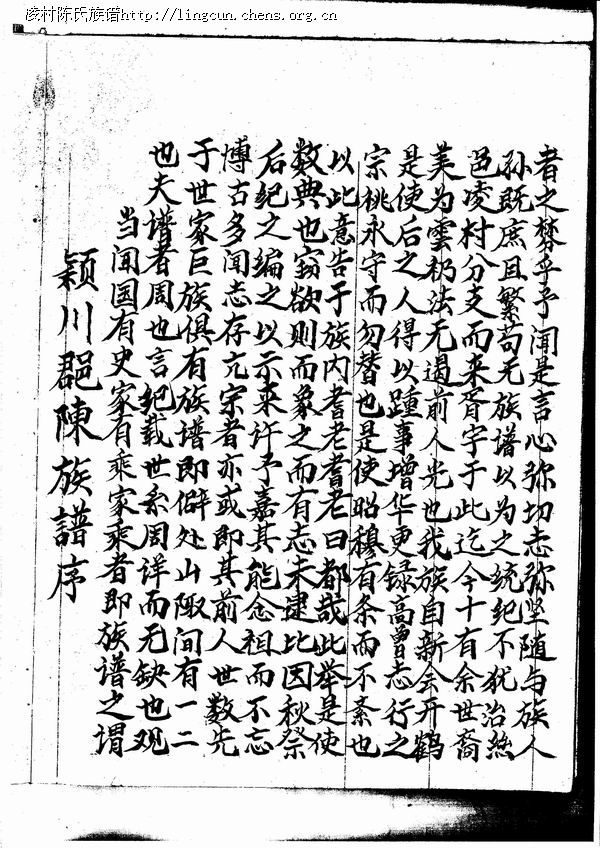 凌村陈氏族谱http://lingcun.chens.org.cn
穎川郡陳族譜序
当闻国有史家有乘家乘者即族谱之谓
也夫谱者周也言纪载世系周详而无缺也观
于世家巨族俱有族谱即僻处山陬间有一二
博古多闻志存亢宗者亦或即其前人世数先
后纪之编之以示来许予嘉其能念祖而不忘
数典也窃欲则而象之而有志未逮比因秋祭
以此意告于族内耆老耆老曰都哉此举是使
宗祧永守而勿替也是使昭穆有条而不紊也
是使后之人得以踵事增华更録高曾志行之
美为雲礽法无遏前人光也我族自新会开鹤
邑凌村分支而来胥宇于此迄今十有余世裔
孙既庶且繁苟无族谱以为之统纪不犹治丝
者之棼乎予闻是言心弥切志弥坚随与族人